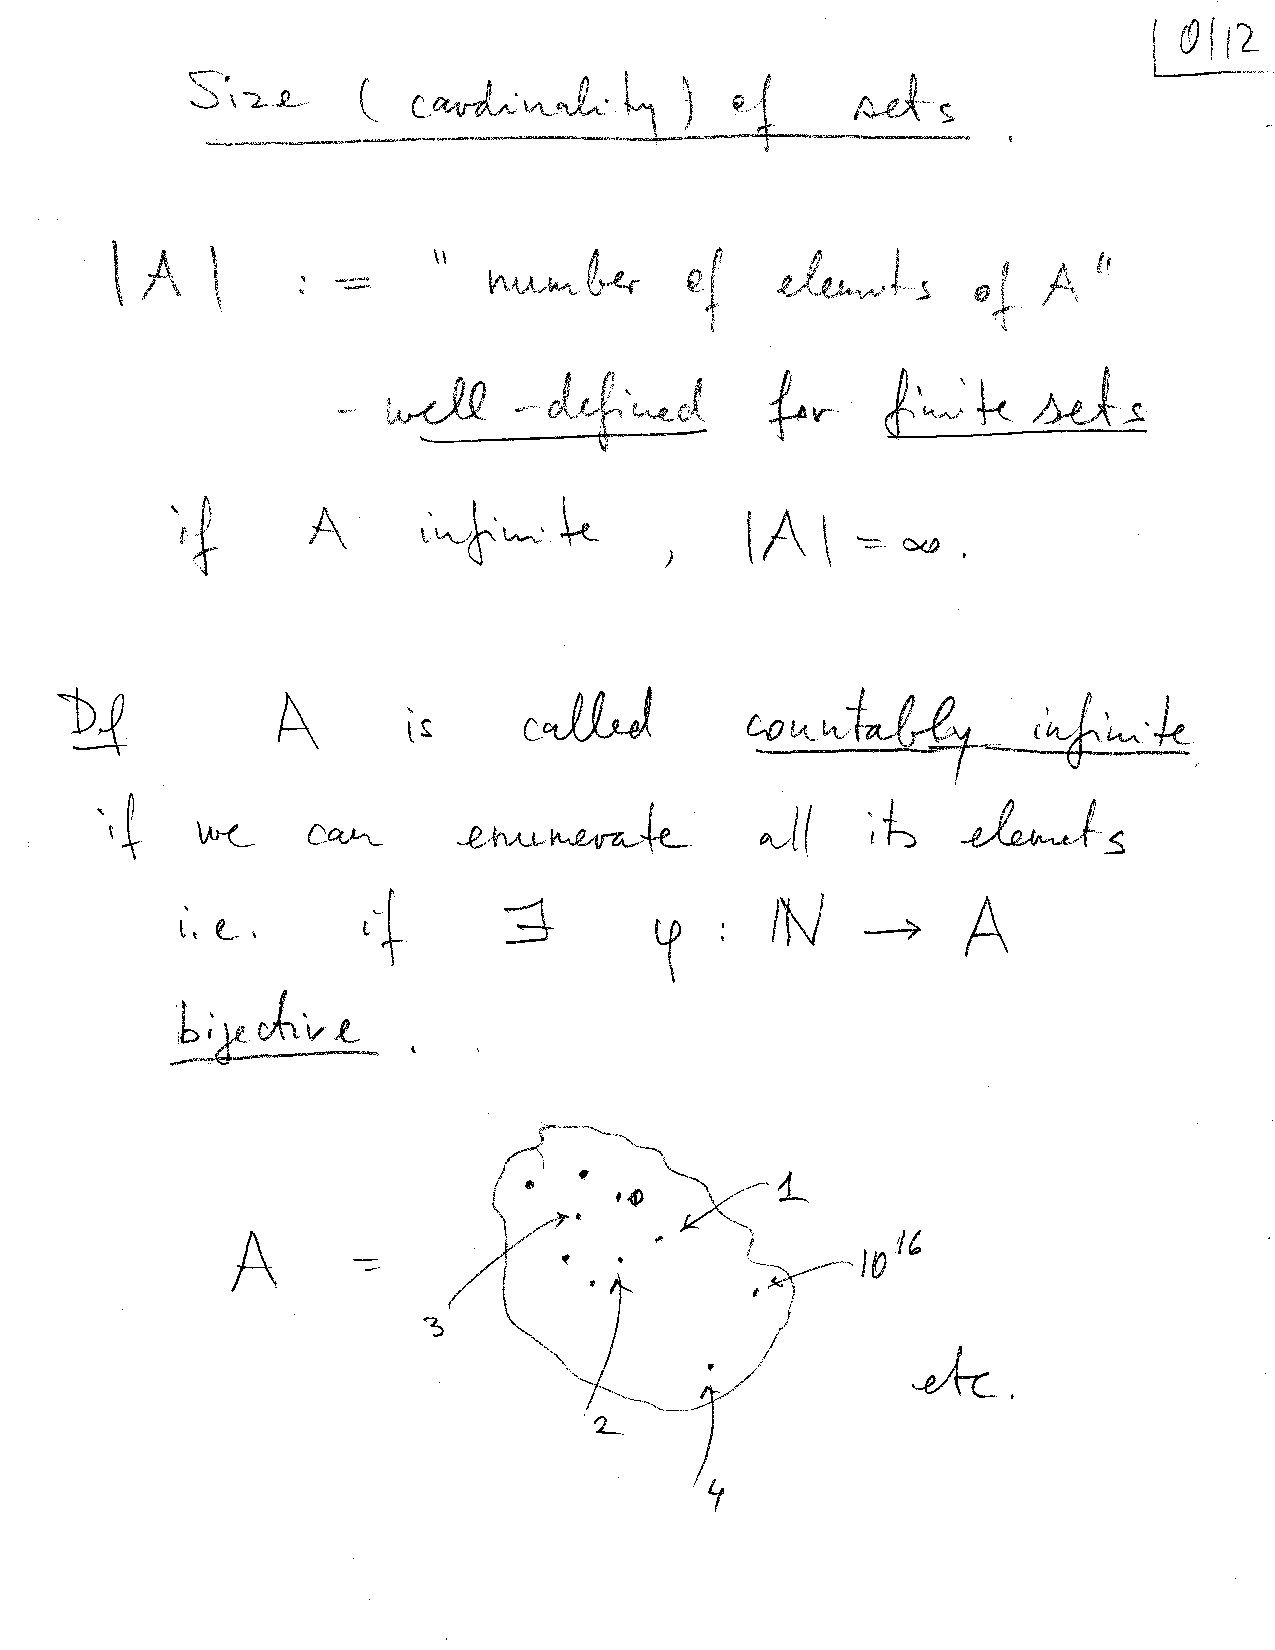 0/12
Size (cardinality) of sets.
|A| := "number of elemnts of A"
- well-defined for finite sets
if A infinite, |A| = ∞.
Df A is called countably infinite
if we can enumerate all its elemnts
i.e. if ∃ φ : ℕ → A
bijective.
1
A = 3 10^16
etc.
2
4